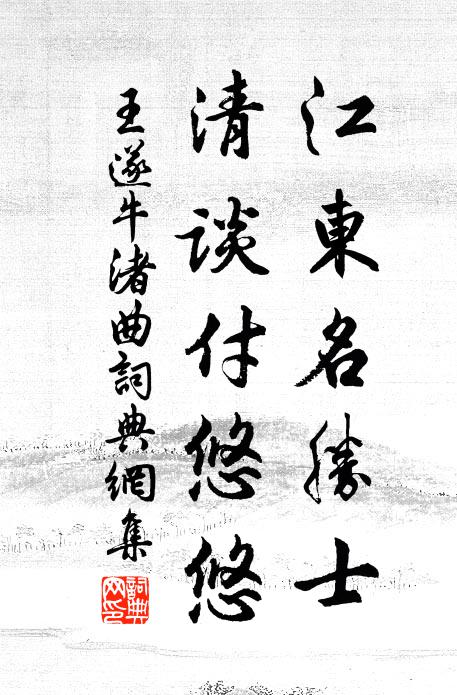 江東名勝士
清談付悠悠
王遂牛渚曲詞典網集
詞典網印